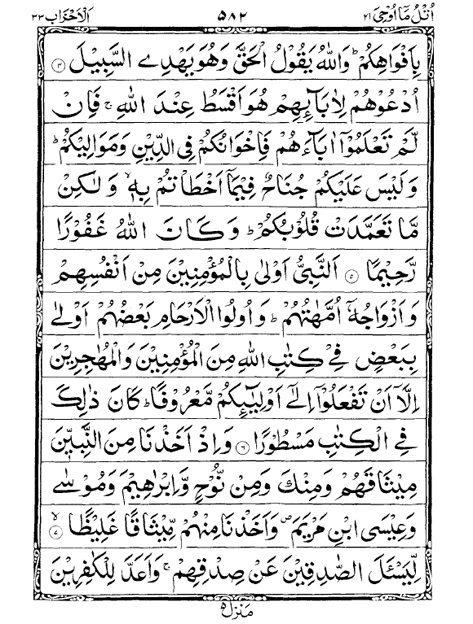 اُتْلُ مَآ اُوْحِیَ ۲۱ ۵۸۲ اَلْاَحْزَاب ۳۳
بِاَفْوَاهِكُمْ ؕ وَاللّٰهُ يَقُوْلُ الْحَقَّ وَهُوَ يَهْدِى السَّبِيْلَ ۴
اُدْعُوْهُمْ لِاٰبَآئِهِمْ هُوَ اَقْسَطُ عِنْدَ اللّٰهِ ۚ فَاِنْ
لَّمْ تَعْلَمُوْۤا اٰبَآءَهُمْ فَاِخْوَانُكُمْ فِى الدِّيْنِ وَمَوَالِيْكُمْ ؕ
وَلَيْسَ عَلَيْكُمْ جُنَاحٌ فِيْمَاۤ اَخْطَاْتُمْ بِهٖ ۙ وَلٰكِنْ
مَّا تَعَمَّدَتْ قُلُوْبُكُمْ ؕ وَكَانَ اللّٰهُ غَفُوْرًا
رَّحِيْمًا ۵ اَلنَّبِىُّ اَوْلٰى بِالْمُؤْمِنِيْنَ مِنْ اَنْفُسِهِمْ
وَاَزْوَاجُهٗۤ اُمَّهٰتُهُمْ ؕ وَاُولُوا الْاَرْحَامِ بَعْضُهُمْ اَوْلٰى
بِبَعْضٍ فِىْ كِتٰبِ اللّٰهِ مِنَ الْمُؤْمِنِيْنَ وَالْمُهٰجِرِيْنَ
اِلَّاۤ اَنْ تَفْعَلُوْۤا اِلٰٓى اَوْلِيٰٓئِكُمْ مَّعْرُوْفًا ؕ كَانَ ذٰلِكَ
فِى الْكِتٰبِ مَسْطُوْرًا ۶ وَاِذْ اَخَذْنَا مِنَ النَّبِيّٖنَ
مِيْثَاقَهُمْ وَمِنْكَ وَمِنْ نُّوْحٍ وَّاِبْرٰهِيْمَ وَمُوْسٰى
وَعِيْسَى ابْنِ مَرْيَمَ ۪ وَاَخَذْنَا مِنْهُمْ مِّيْثَاقًا غَلِيْظًا ۙ ۷
لِّيَسْئَلَ الصّٰدِقِيْنَ عَنْ صِدْقِهِمْ ۚ وَاَعَدَّ لِلْكٰفِرِيْنَ
مَنْزِل ۵